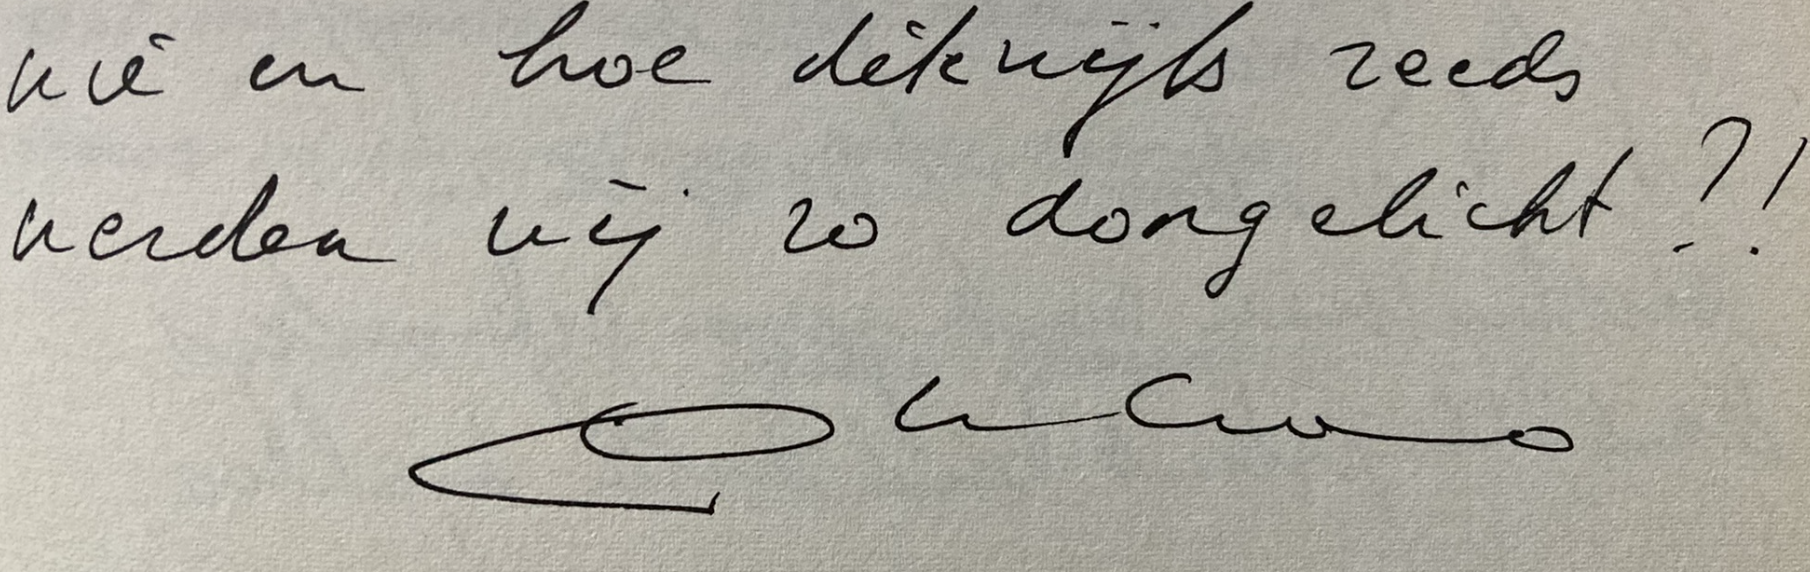 wie en hoe dikwijls reeds
werden wij zo doorgelicht ?!